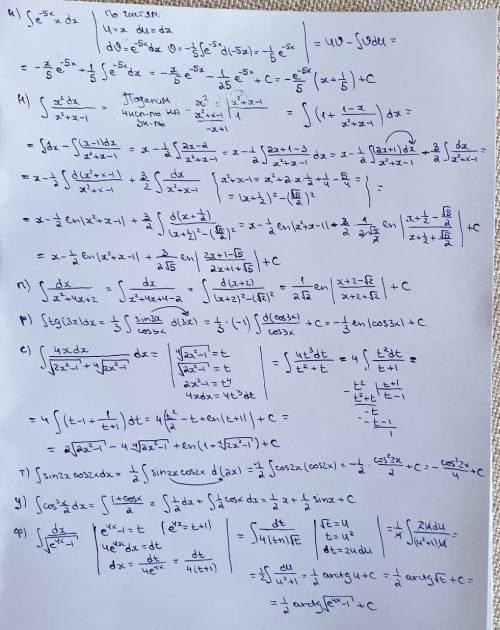 и) ∫e^{-5x} x dx | по частям: u = x du = dx dv = e^{-5x}dx v = -1/5 ∫e^{-5x}d(-5x) = -1/5 e^{-5x} | = uv - ∫vdu =
= -x/5 e^{-5x} + 1/5 ∫e^{-5x}dx = -x/5 e^{-5x} - 1/25 e^{-5x} + C = -e^{-5x}/5 (x + 1/5) + C
н) ∫ x²dx/(x²+x-1) = | Поделим числ-ль на зн-ль x² | x²+x-1 x²+x-1 1 -x+1 | = ∫(1 + (1-x)/(x²+x-1))dx =
= ∫dx - ∫(x-1)dx/(x²+x-1) = x - 1/2 ∫(2x-2)/(x²+x-1) = x - 1/2 ∫(2x+1-3)/(x²+x-1) dx = x - 1/2 ∫(2x+1)dx/(x²+x-1) + 3/2 ∫dx/(x²+x-1) =
= x - 1/2 ∫d(x²+x-1)/(x²+x-1) + 3/2 ∫dx/(x²+x-1) { x²+x-1 = x²+2x·1/2+1/4-5/4 = = (x+1/2)² - (√5/2)² } =
= x - 1/2 ln|x²+x-1| + 3/2 ∫d(x+1/2)/((x+1/2)²-(√5/2)²) = x - 1/2 ln|x²+x-1| + 3/2 · 1/(2·√5/2) ln|(x+1/2-√5/2)/(x+1/2+√5/2)| + C
= x - 1/2 ln|x²+x-1| + 3/(2√5) ln|(2x+1-√5)/(2x+1+√5)| + C
п) ∫dx/(x²+4x+2) = ∫dx/(x²+4x+4-2) = ∫d(x+2)/((x+2)²-(√2)²) = 1/(2√2) ln|(x+2-√2)/(x+2+√2)| + C
р) ∫tg(3x)dx = 1/3 ∫sin3x/cos3x d(3x) = 1/3·(-1)∫d(cos3x)/cos3x + C = -1/3 ln|cos3x| + C
с) ∫4xdx/(√(2x²-1)+⁴√(2x²-1)) dx = | ⁴√(2x²-1) = t √(2x²-1) = t² 2x²-1 = t⁴ 4xdx = 4t³dt | = ∫4t³dt/(t²+t) = 4∫t²dt/(t+1) =
t² | t+1
t²+t t-1
-t
-t-1
1
= 4∫(t-1+1/(t+1))dt = 4(t²/2 - t + ln|t+1|) + C =
= 2√(2x²-1) - 4·⁴√(2x²-1) + ln(1+⁴√(2x²-1)) + C
т) ∫sin2x cos2x dx = 1/2 ∫sin2x cos2x d(2x) = -1/2 ∫cos2x (cos2x) = -1/2 · cos²2x/2 + C = -cos²2x/4 + C
у) ∫cos² x/2 dx = ∫(1+cosx)/2 = ∫1/2 dx + ∫1/2 cosx dx = 1/2 x + 1/2 sinx + C
ф) ∫dx/√(e^{4x}-1) | e^{4x}-1 = t (e^{4x} = t+1) 4e^{4x}dx = dt dx = dt/4e^{4x} = dt/4(t+1) | = ∫dt/(4(t+1)√t) | √t = u t = u² dt = 2udu | = 1/4 ∫2udu/((u²+1)u) =
= 1/2 ∫du/(u²+1) = 1/2 arctg u + C = 1/2 arctg√t + C =
= 1/2 arctg√(e^{4x}-1) + C